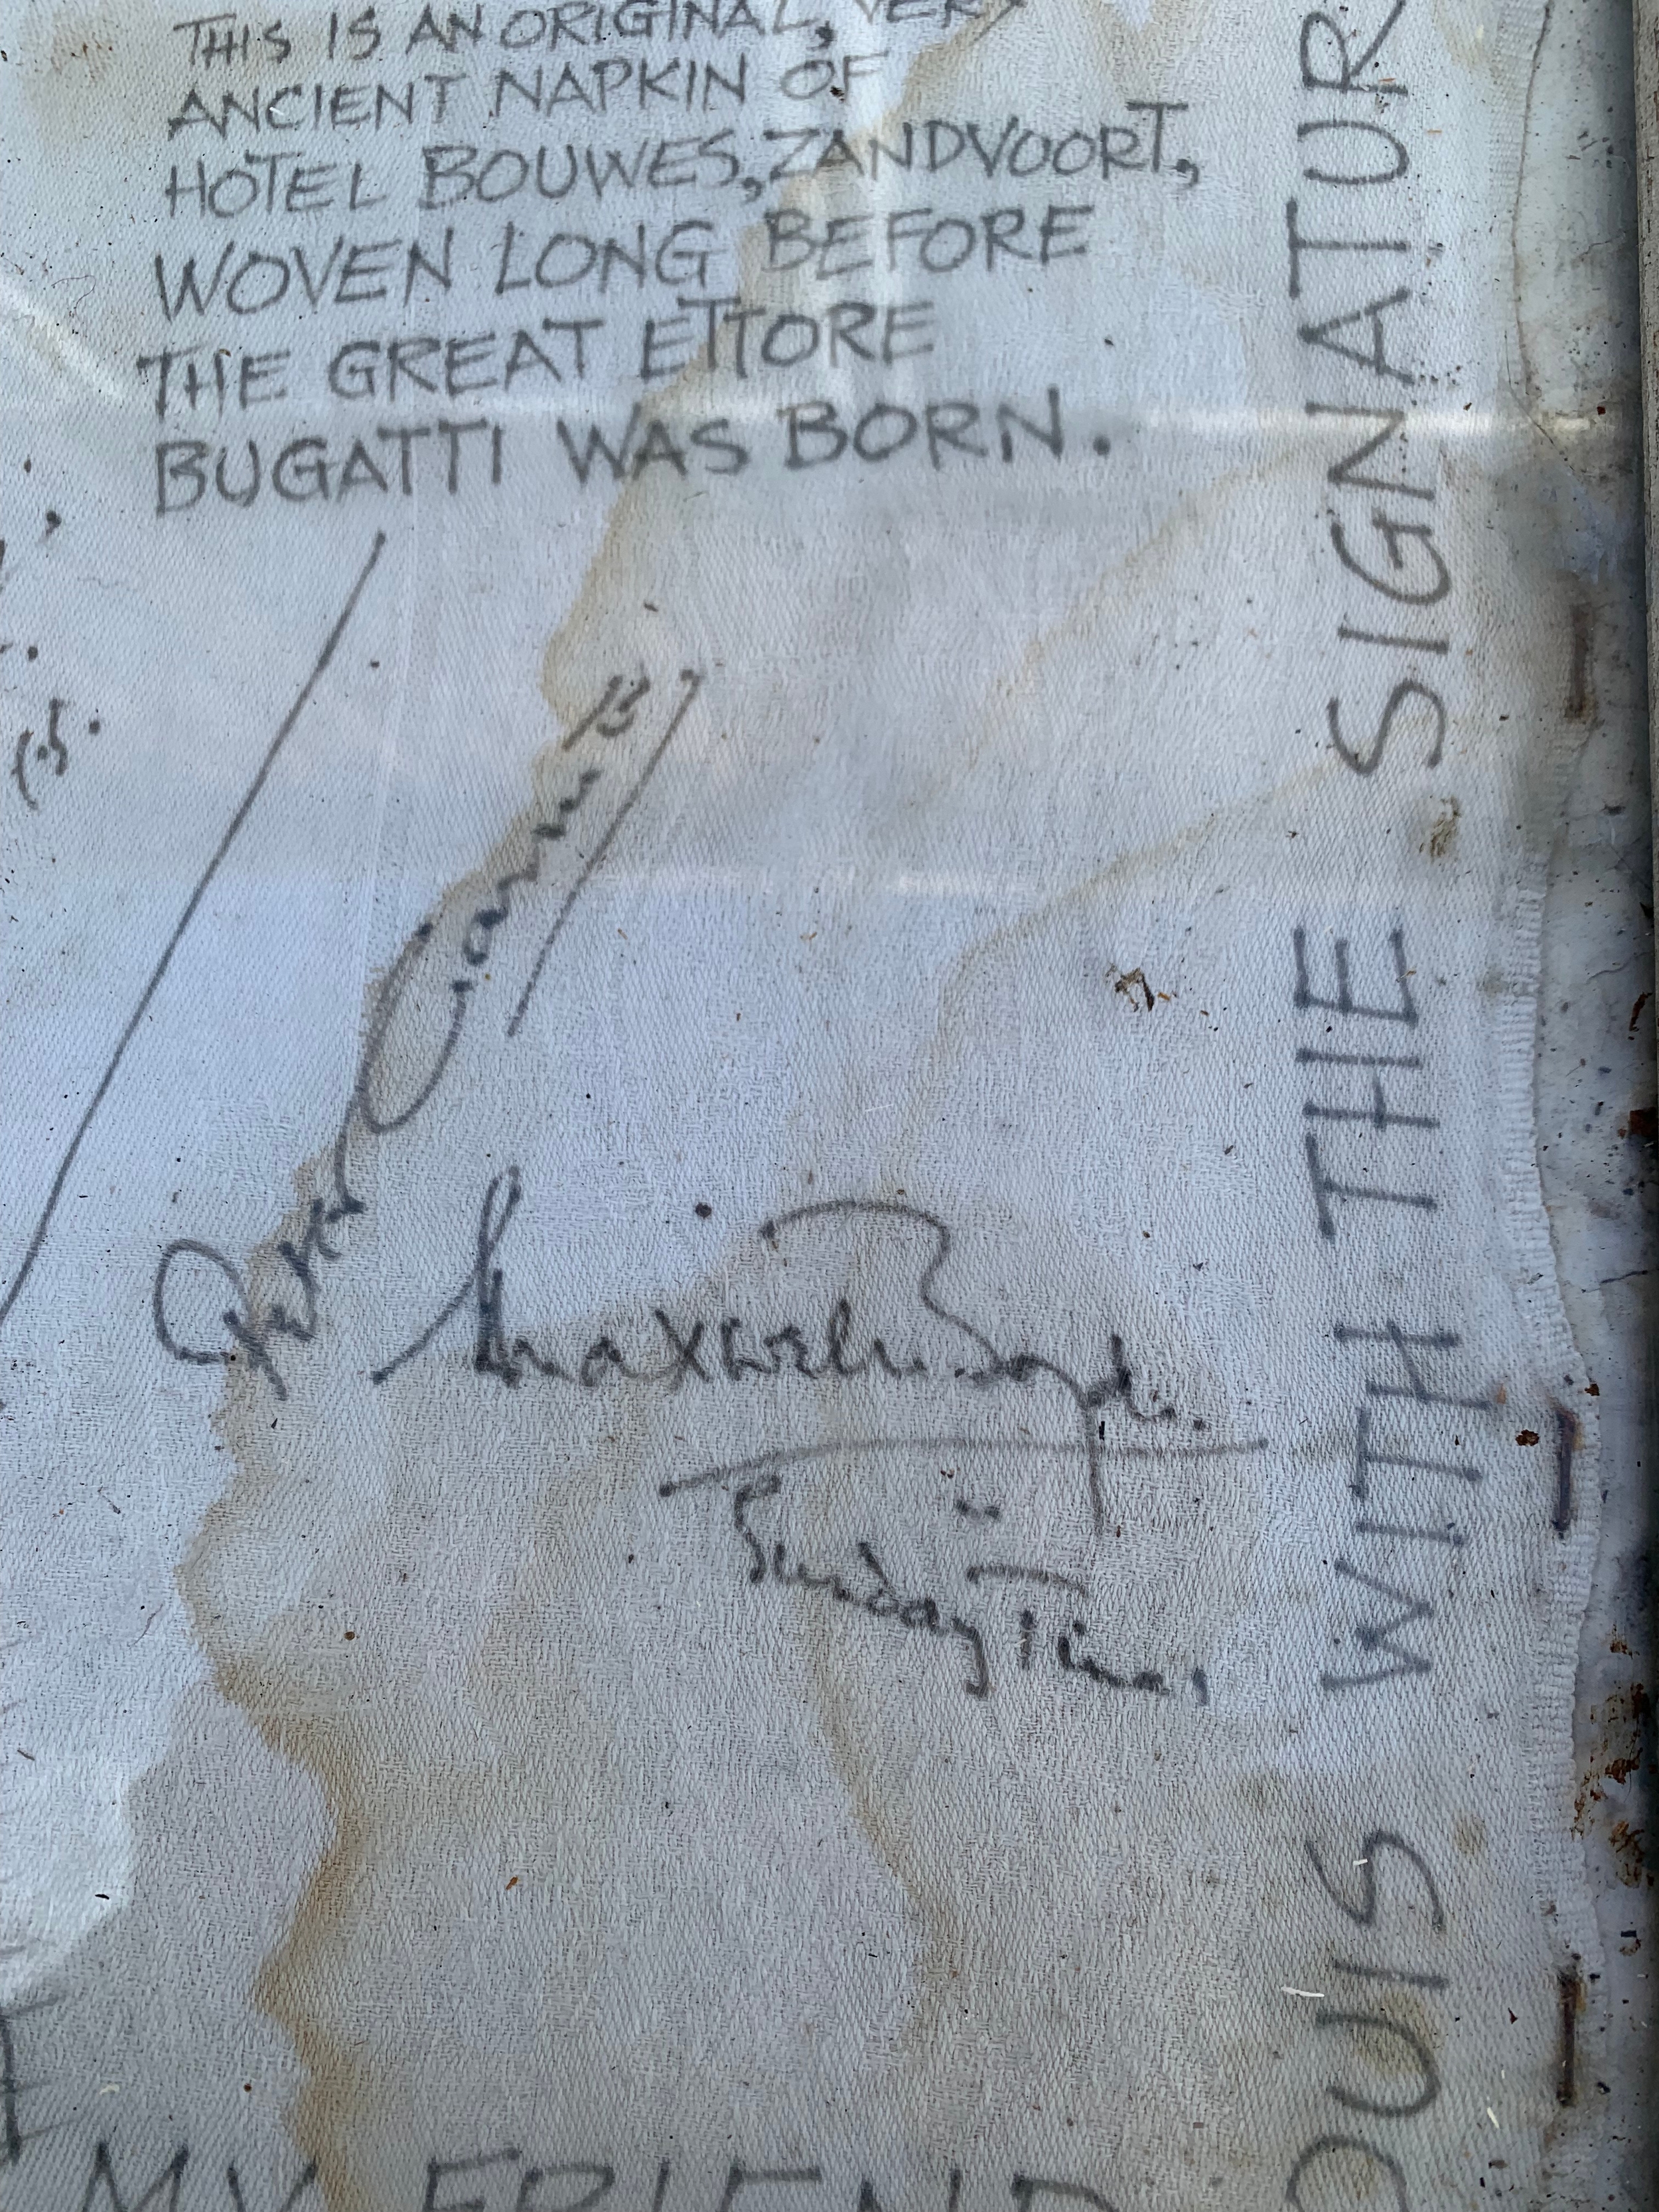 THIS IS AN ORIGINAL, VERY
ANCIENT NAPKIN OF
HOTEL BOUWES, ZANDVOORT,
WOVEN LONG BEFORE
THE GREAT ETTORE
BUGATTI WAS BORN.
Maxwell Boyd.
Sunday Times
MY FRIEND
OUIS WITH THE SIGNATUR